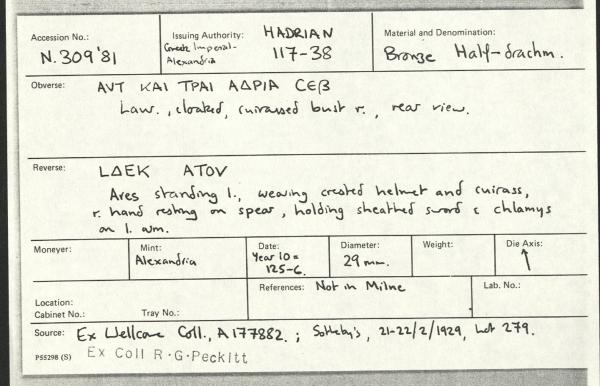 Accession No.:
N.309'81
Issuing Authority: HADRIAN
Greek Imperial-
Alexandria
117-38
Material and Denomination:
Bronze Half-drachm.
Obverse: ΑVΤ ΚΑΙ ΤΡΑΙ ΑΔΡΙΑ CЄβ
Laur., cloaked, cuirassed bust r., rear view.
Reverse: LΔEK ATOV
Ares standing l., wearing crested helmet and cuirass,
r. hand resting on spear, holding sheathed sword c chlamys
on l. arm.
Moneyer:
Mint:
Alexandria
Date:
Year 10 =
125-6.
Diameter:
29 mm.
Weight:
Die Axis:
↑
Location:
Cabinet No.: Tray No.:
References: Not in Milne
Lab. No.:
Source: Ex Wellcome Coll., A177882. ; Sotheby's, 21-22/2/1929, Lot 279.
P55298 (S) Ex Coll R·G·Peckitt